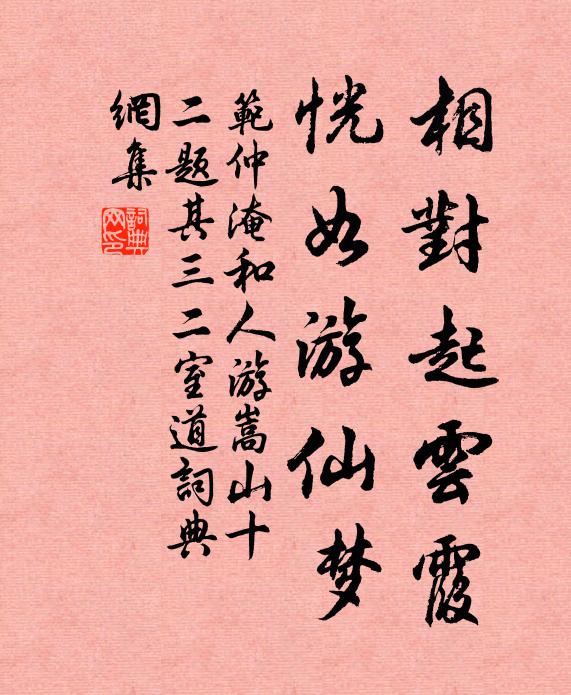 相對起雲霞
恍如游仙梦
範仲淹和人游嵩山十
二題其三二室道詞典
網集
詞典
网印